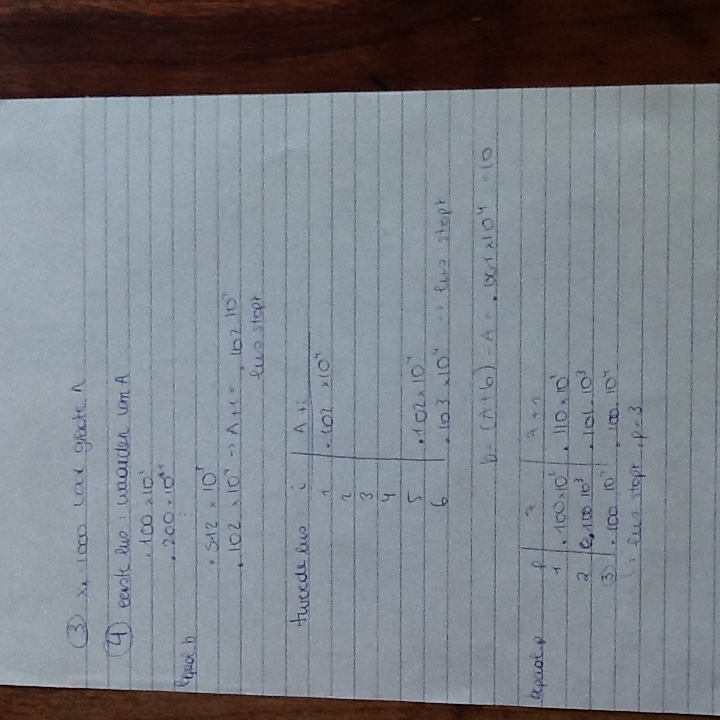 ③ x 1000 voor grote A
④ eerste lus : waarden van A
.100 x 10¹
.200 x 10
bepaal b
.512 x 10³
.102 x 10⁴ → A+1 = .102 10⁴
lus stopt
tweede lus i A+i
1 .102 x10⁴
2
3
4
5 .102 x 10⁴
6 .103 x 10⁴ → lus stopt
b = (A+b) - A = .001 x 10⁴ = 10
bepaal p p z z+1
1 .100 x 10² .110 x 10²
2 0.100 10³ .101. 10³
③ .100 10⁴ .100. 10⁴
↳ lus stopt, p=3